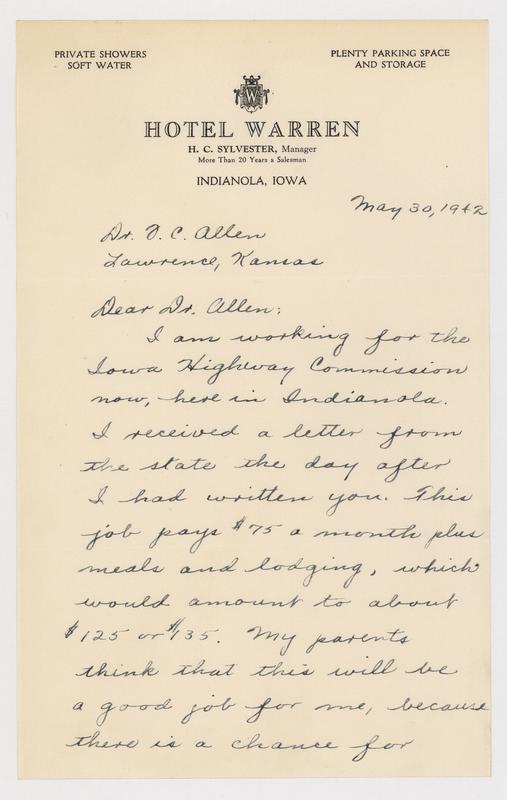 PRIVATE SHOWERS
SOFT WATER
PLENTY PARKING SPACE
AND STORAGE
W
HOTEL WARREN
H. C. SYLVESTER, Manager
More Than 20 Years a Salesman
INDIANOLA, IOWA
May 30, 1942
Dr. F. C. Allen
Lawrence, Kansas
Dear Dr. Allen:
I am working for the
Iowa Highway Commission
now, here in Indianola.
I received a letter from
the state the day after
I had written you. This
job pays $75 a month plus
meals and lodging, which
would amount to about
$125 or $135. My parents
think that this will be
a good job for me, because
there is a chance for